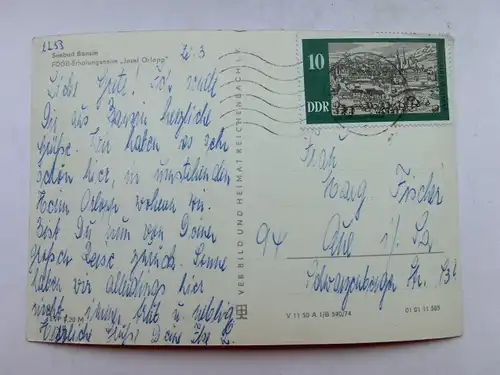 2253
Zi. 3
Seebad Bansin
FDGB-Erholungsheim „Josef Orlopp"
Liebe Gretl! Ich sende
Dir aus Bansin herzliche
Grüße. Wir haben es sehr
schön hier, im umstehenden
Heim Orlopp wohnen wir.
Bist Du nun von Deiner
großen Reise zurück. Sonne
haben wir allerdings hier
nicht immer, und neblig
Herzliche Grüße Deine Ilse
VEB BILD UND HEIMAT REICHENBACH i. V.
10
DDR
Frau
Marg. Fischer
94 Aue i/Sa
Schwarzenberger Str.
V 11 50 A 1/B 590/74
01 01 11 505
M